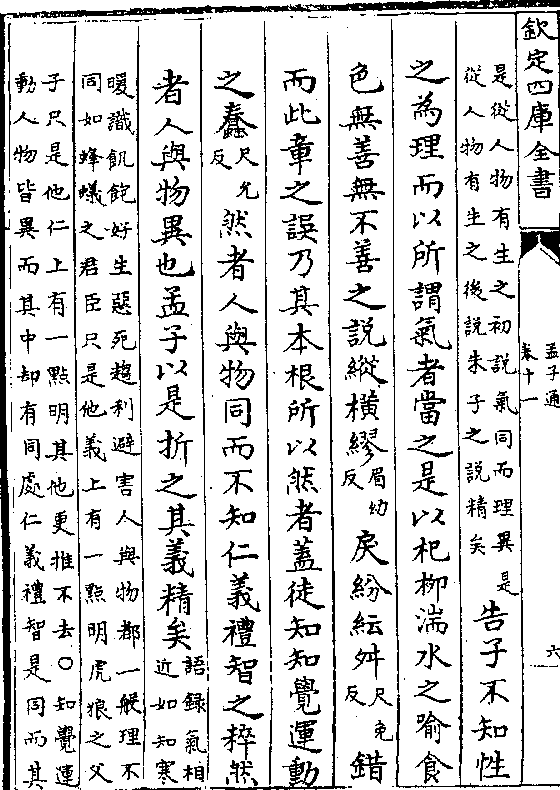 欽定四庫全書
孟子通
卷十一
六
是從人物有生之初說氣同而理異是
從人物有生之後說朱子之說精矣
告子不知性
之為理而以所謂氣者當之是以杞柳湍水之喻食
色無善無不善之説縱橫繆眉幼反戾紛紜舛尺免反錯
而此章之誤乃其本根所以然者蓋徒知知覺運動
之蠢尺允反然者人與物同而不知仁義禮智之粹然
者人與物異也孟子以是折之其義精矣
語録氣相
近如知寒
暖識飢飽好生惡死趨利避害人與物都一般理不
同如蜂蟻之君臣只是他義上有一點明虎狼之父
子只是他仁上有一點明其他更推不去○知覺運
動人物皆異而其中却有同處仁義禮智是同而其